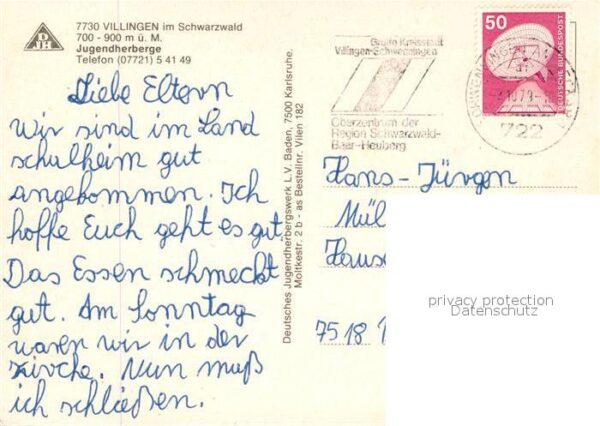 DJH
7730 VILLINGEN im Schwarzwald
700 - 900 m ü. M.
Jugendherberge
Telefon (07721) 5 41 49
Liebe Eltern
Wir sind im Land
schulheim gut
angekommen. Ich
hoffe Euch geht es gut
Das Essen schmeckt
gut. Am Sonntag
waren wir in der
Kirche. Nun muß
ich schließen.
Deutsches Jugendherbergswerk L.V. Baden, 7500 Karlsruhe.
Moltkestr. 2 b - as Bestellnr. Vilen 182
Große Kreisstadt
Villingen-Schwenningen
Oberzentrum der
Region Schwarzwald-
Baar-Heuberg
50
DEUTSCHE BUNDESPOST
722
Hans-Jürgen
Mül
Haus
7518
privacy protection
Datenschutz